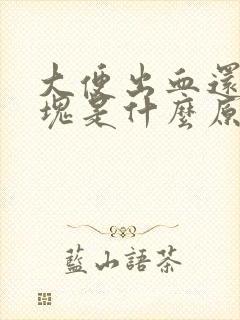 大便出血還
塊是什麼原
藍山語茶